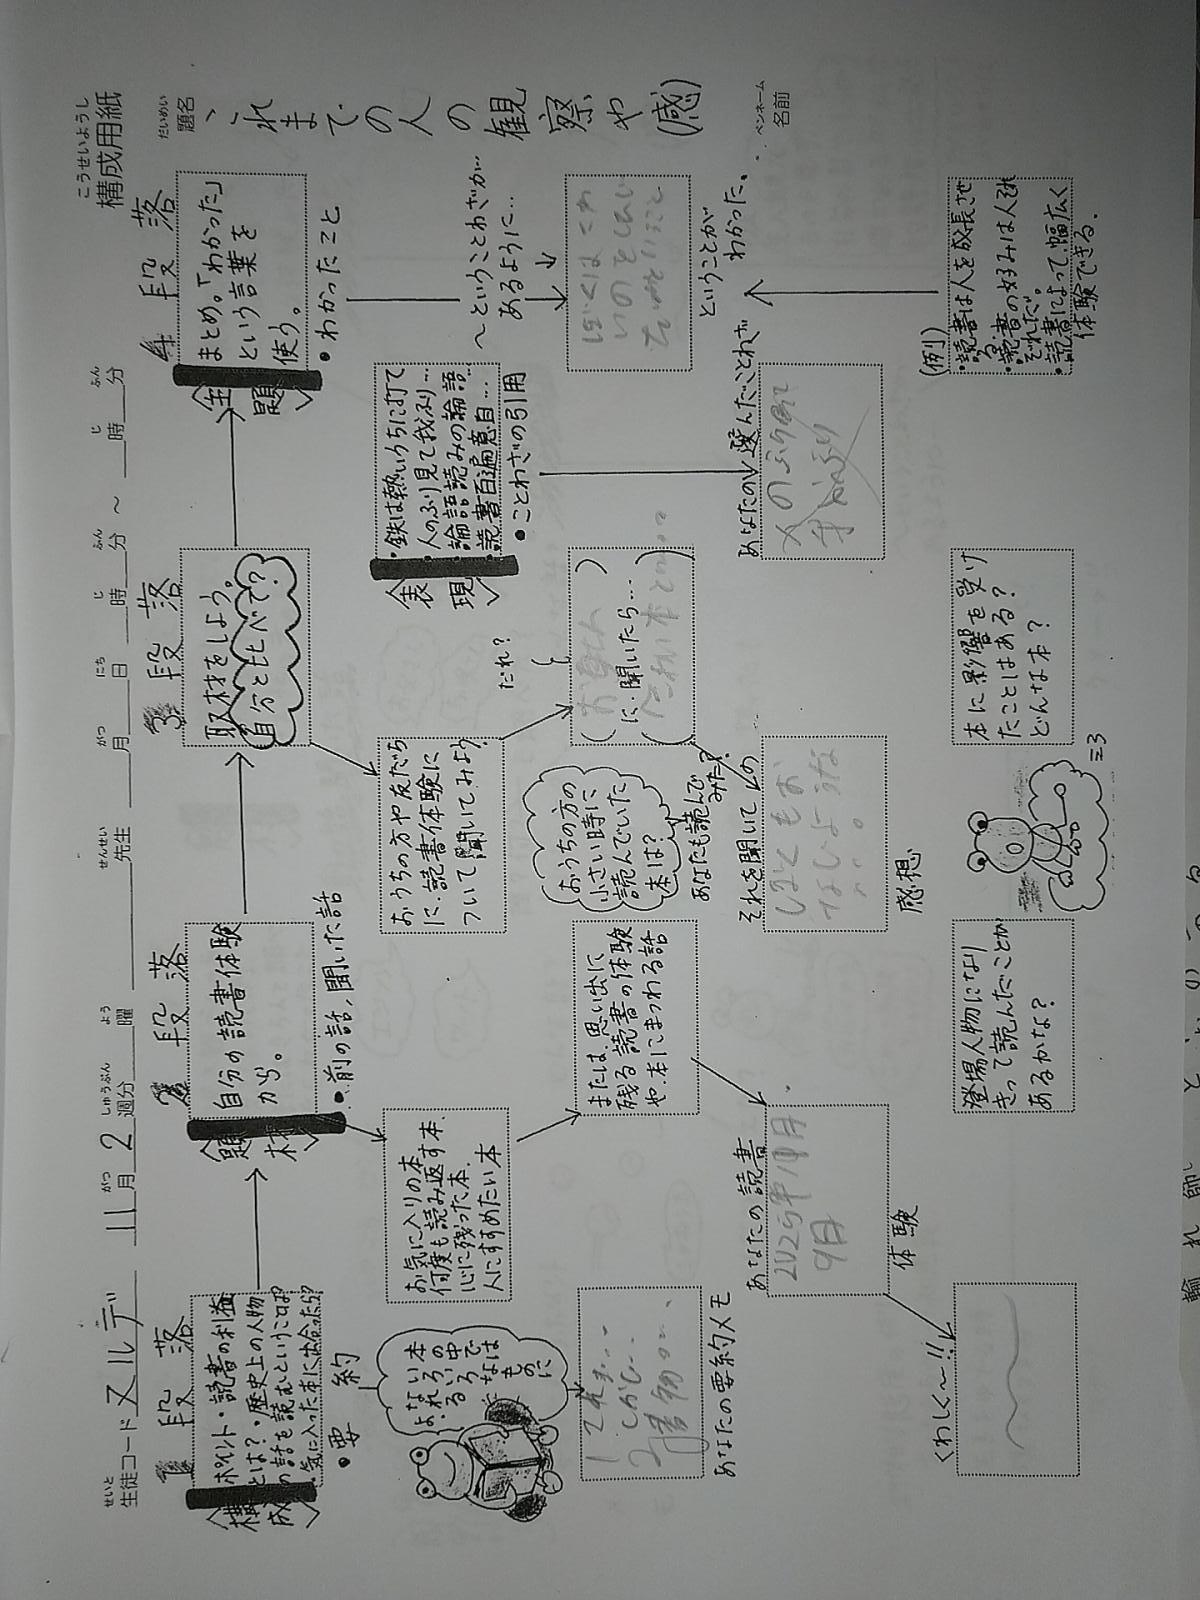 こうせいようし
構成用紙
だいめい
題名
これまでの人の観察や(感)
ペンネーム
名前
せいと
生徒コード ヌルデ
がつ しゅうぶん よう
11月2週分 曜
せんせい
先生
がつ にち じ ふん じ ふん
月 日 時 分 ～ 時 分
1段落
〈構成〉
ポイント・読書の利益
とは?・歴史上の人物
の話を読むということは?
・気に入った本に出会ったら?
・要約
本の中では
いろいろな
ものに
なれるよ
1これま…
しかし…
あなたの要約メモ
2段落
〈題材〉
自分の読書体験
から。
・前の話,聞いた話
お気に入りの本、
何度も読み返す本、
心に残った本、
人にすすめたい本
または、思い出に
残る読書の体験
や、本にまつわる話
あなたの読書
体験
9月
くわしく～!!
3段落
取材をしよう。
自分と比べて?
おうちの方や友だち
に、読書体験に
ついて聞いてみよう。
だれ?
(お母さん)
に、聞いたら…
おうちの方の
小さい時に
読んでいた
本は?
あなたも読んで
みた?
それを聞いての
感想
登場人物になり
きって読んだことが
あるかな?
本に影響を受け
たことはある?
どんな本?
4段落
〈主題〉
まとめ。「わかった」
という言葉を
使う。
・わかったこと
〈表現〉
・鉄は熱いうちに打て
・人のふり見て我ふり…
・論語読みの論語…
・読書百遍意自…
・ことわざの引用
あなたの選んだことわざ
～ということわざが…
あるように…
ということが
わかった。
(例)
・読書は人を成長させ
る。
・読書の好みは人それ
ぞれだ。
・読書によって、幅広く
体験できる。